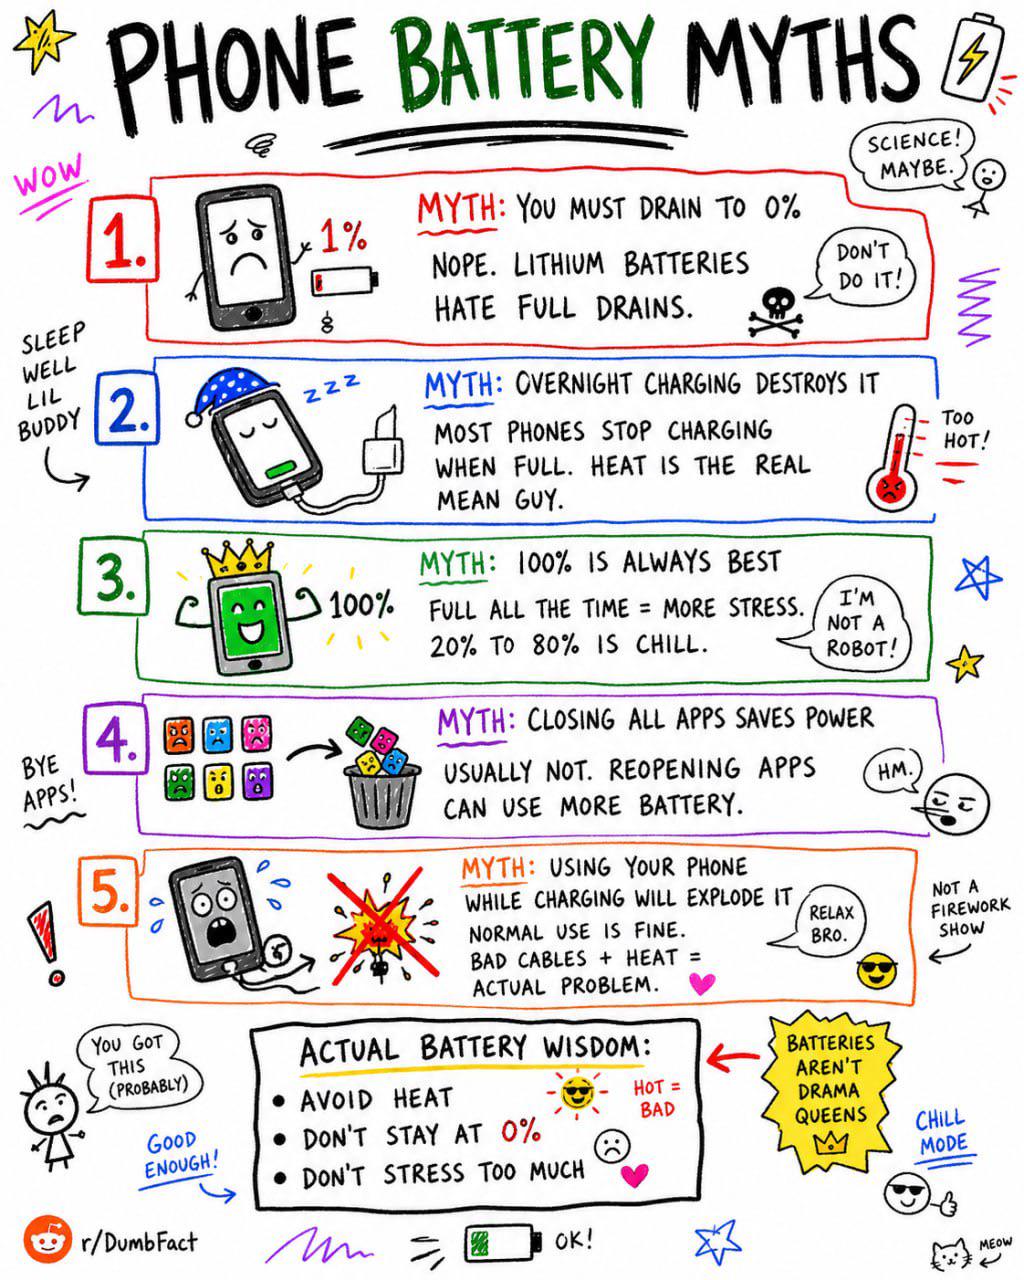 PHONE BATTERY MYTHS
WOW
SCIENCE!
MAYBE.
1.
1%
MYTH: YOU MUST DRAIN TO 0%
NOPE. LITHIUM BATTERIES
HATE FULL DRAINS.
DON'T
DO IT!
SLEEP
WELL
LIL
BUDDY
2.
z z z
MYTH: OVERNIGHT CHARGING DESTROYS IT
MOST PHONES STOP CHARGING
WHEN FULL. HEAT IS THE REAL
MEAN GUY.
TOO
HOT!
3.
100%
MYTH: 100% IS ALWAYS BEST
FULL ALL THE TIME = MORE STRESS.
20% TO 80% IS CHILL.
I'M
NOT A
ROBOT!
BYE
APPS!
4.
MYTH: CLOSING ALL APPS SAVES POWER
USUALLY NOT. REOPENING APPS
CAN USE MORE BATTERY.
HM.
5.
MYTH: USING YOUR PHONE
WHILE CHARGING WILL EXPLODE IT
NORMAL USE IS FINE.
BAD CABLES + HEAT =
ACTUAL PROBLEM.
RELAX
BRO.
NOT A
FIREWORK
SHOW
!
YOU GOT
THIS
(PROBABLY)
GOOD
ENOUGH!
ACTUAL BATTERY WISDOM:
• AVOID HEAT
• DON'T STAY AT 0%
• DON'T STRESS TOO MUCH
HOT =
BAD
BATTERIES
AREN'T
DRAMA
QUEENS
CHILL
MODE
r/DumbFact
OK!
MEOW